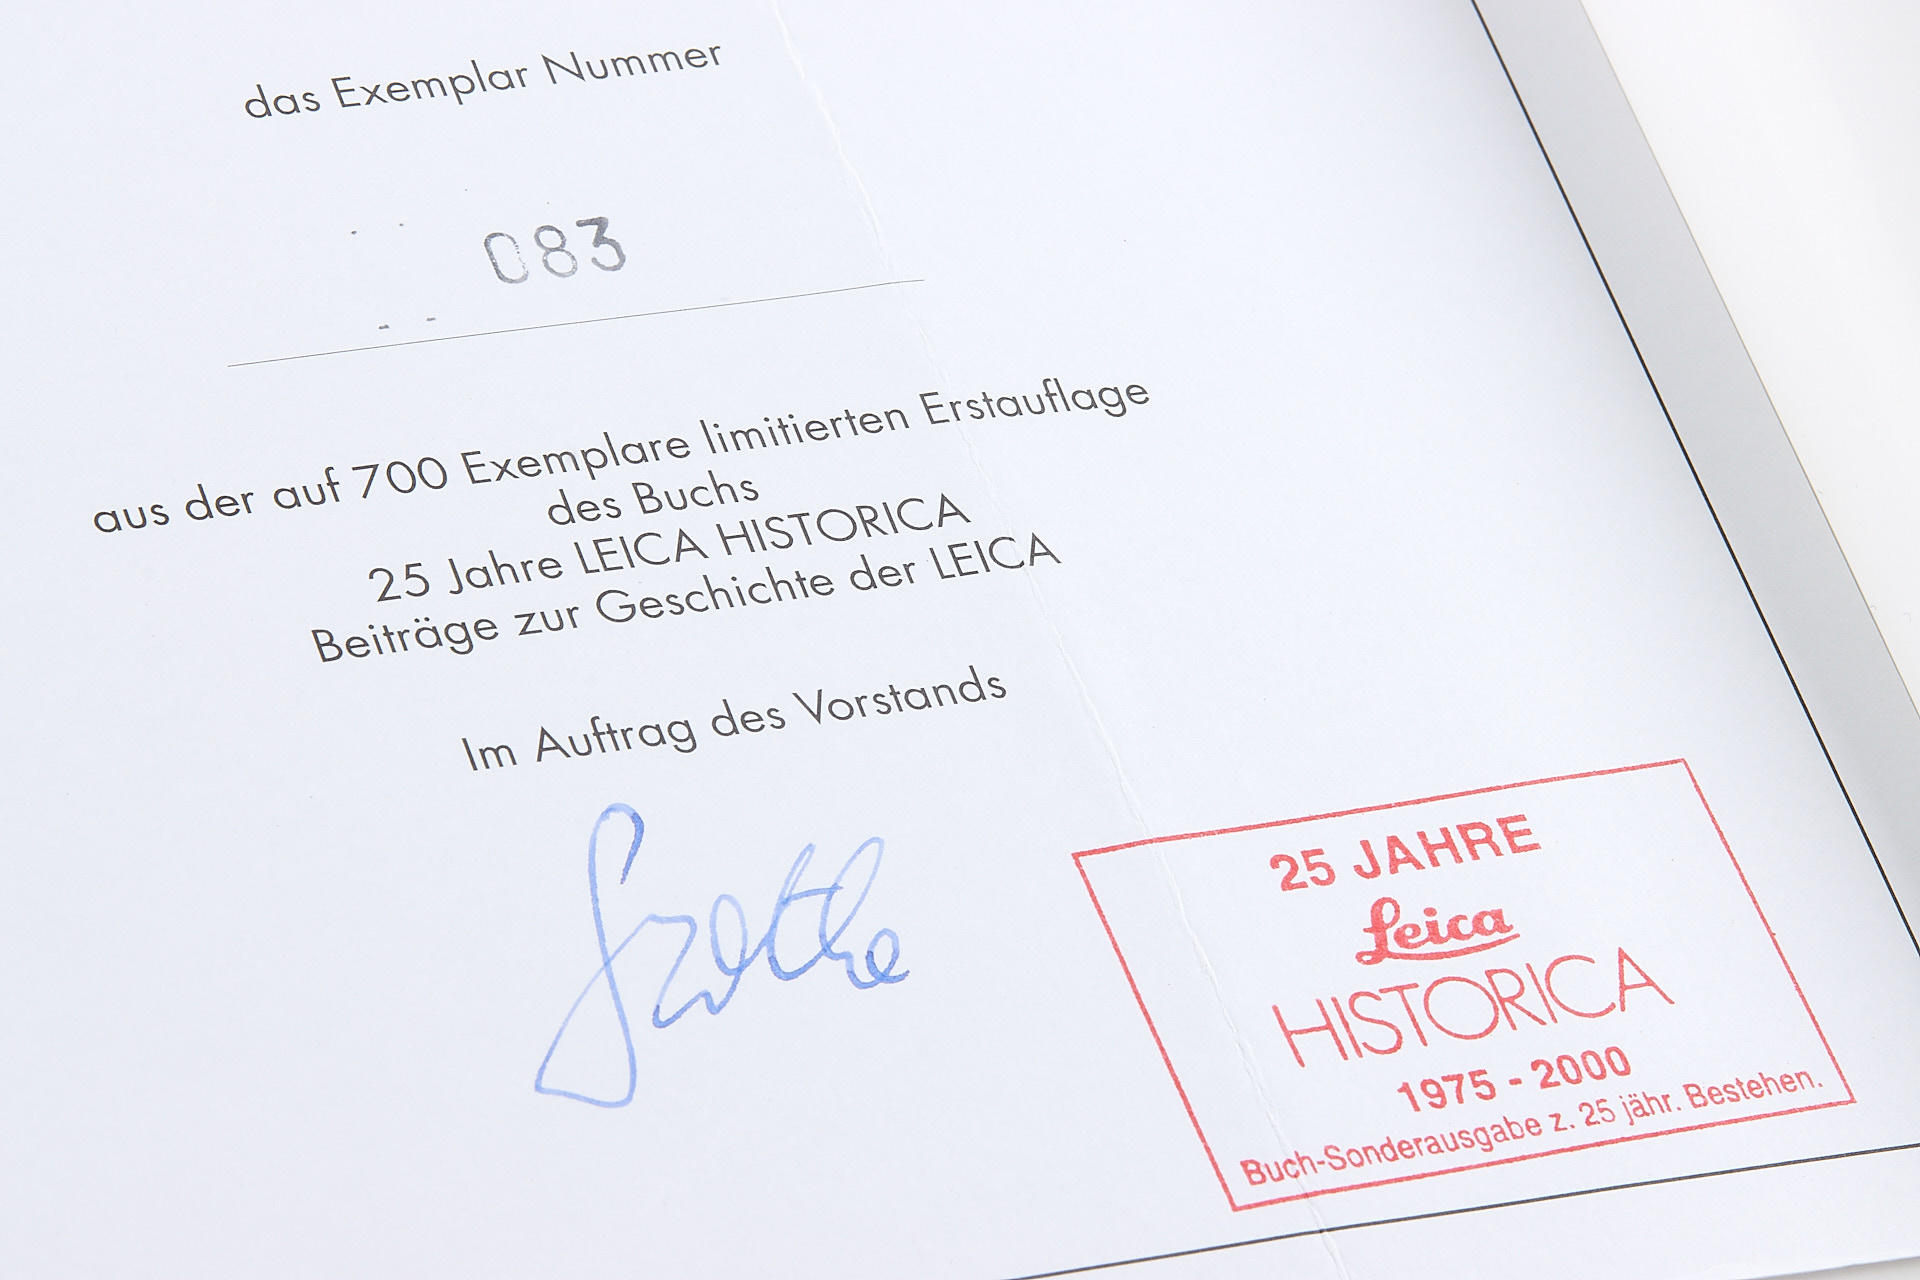 das Exemplar Nummer
083
aus der auf 700 Exemplare limitierten Erstauflage
des Buchs
25 Jahre LEICA HISTORICA
Beiträge zur Geschichte der LEICA
Im Auftrag des Vorstands
25 JAHRE
Leica
HISTORICA
1975 - 2000
Buch-Sonderausgabe z. 25 jähr. Bestehen.